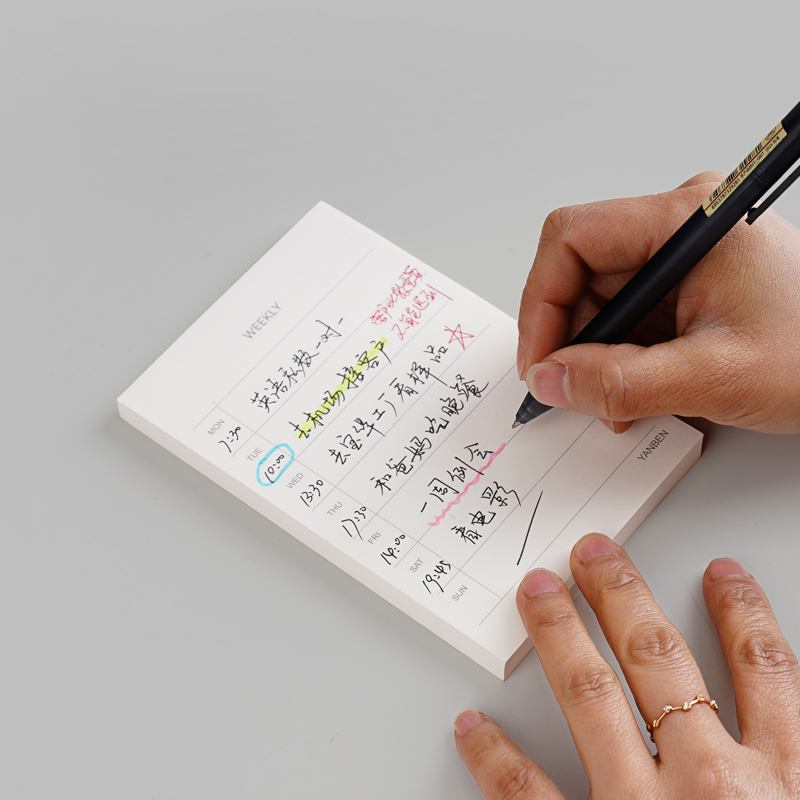 WEEKLY
MON
7:30
英语私教一对一
TUE
10:00
去机场接客户
客户比较重要
不能迟到
WED
13:30
去宝华工厂看样品
THU
17:30
和爸妈吃晚餐
FRI
14:00
一周例会
SAT
19:45
看电影
SUN
YANBEN